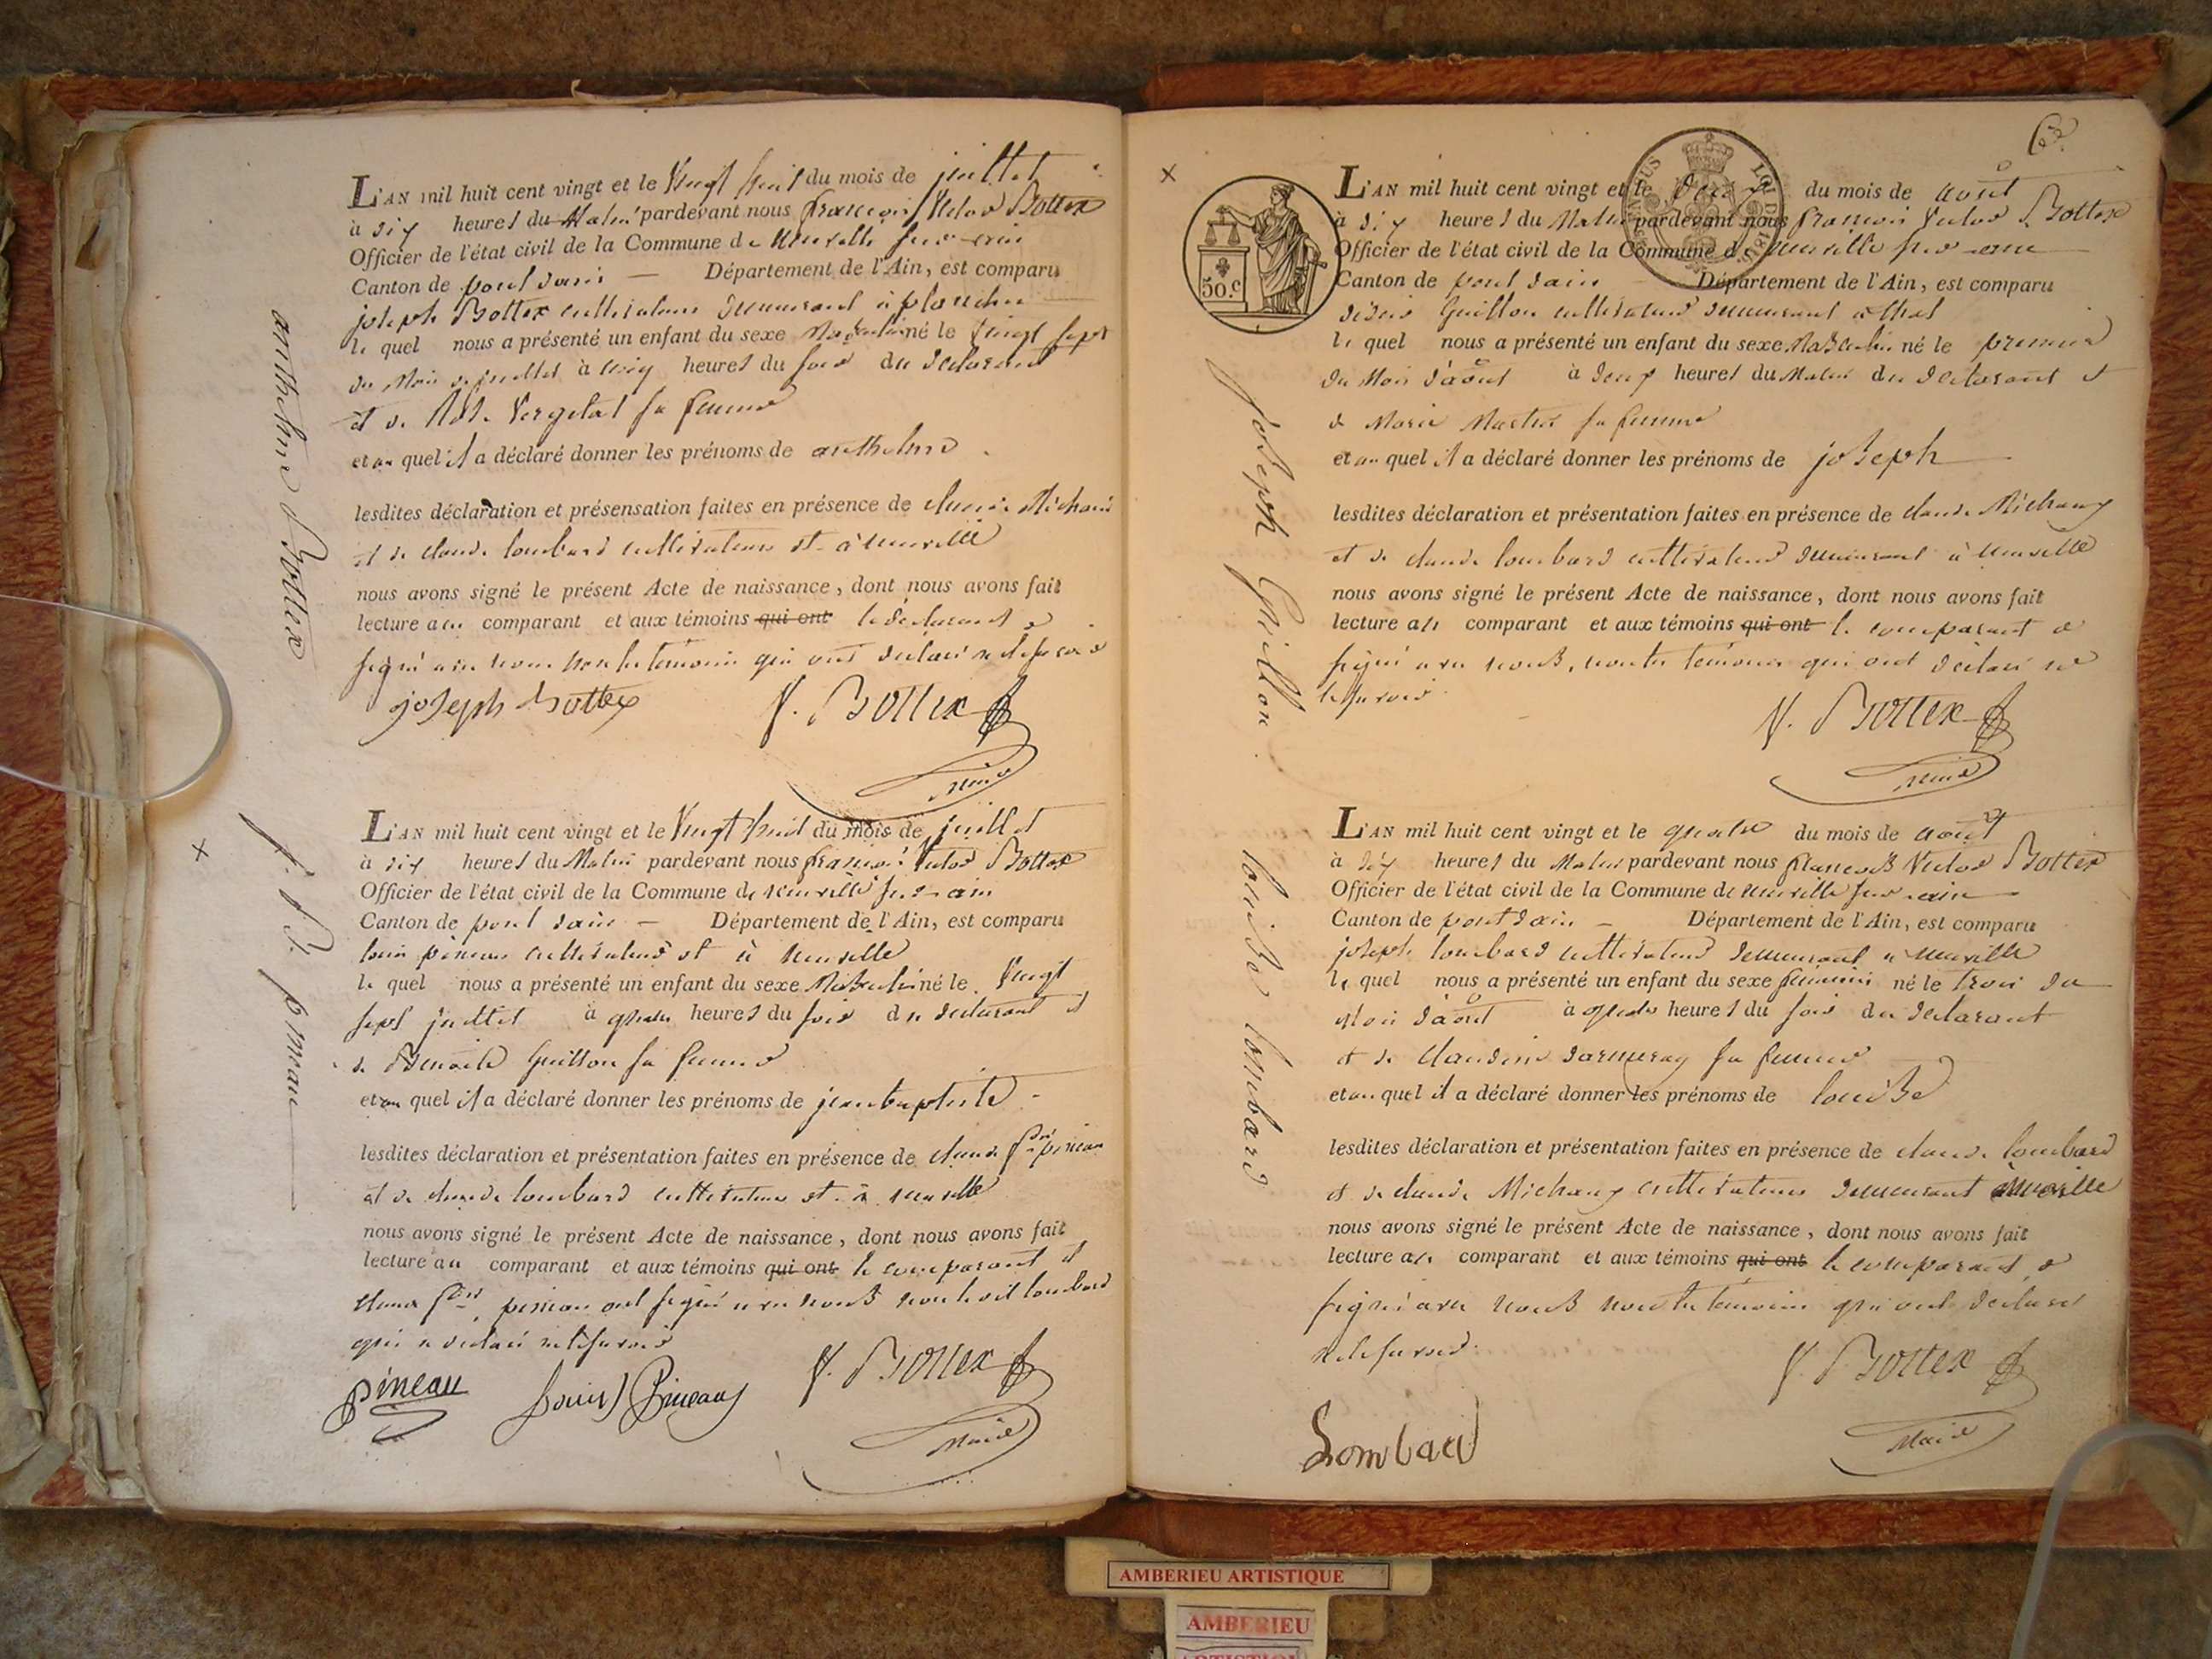 L'AN mil huit cent vingt et le Vingt huit du mois de juillet
à dix heures du Matin pardevant nous françois Victor Bottex
Officier de l'état civil de la Commune de Neuville sur ain
Canton de pont dain — Département de l'Ain, est comparu
joseph Bottex cultivateur demeurant à planche
le quel nous a présenté un enfant du sexe Masculin né le Vingt sept
du Mois de juillet à cinq heures du soir du déclarant
et de sa femme
et au quel il a déclaré donner les prénoms de anthelme
lesdites déclaration et présensation faites en présence de claude Michaud
et de claude lombard cultivateurs à neuville
nous avons signé le présent Acte de naissance, dont nous avons fait
lecture au comparant et aux témoins qui ont le déclarant a
signé avec nous non les témoins qui ont déclaré ne le savoir
joseph Bottex V. Bottex
Maire
anthelme Bottex
L'AN mil huit cent vingt et le Vingt huit du mois de juillet
à dix heures du Matin pardevant nous françois Victor Bottex
Officier de l'état civil de la Commune de neuville sur ain
Canton de pont dain — Département de l'Ain, est comparu
louis pineau cultivateur à neuville
le quel nous a présenté un enfant du sexe Masculin né le Vingt
sept juillet à quatre heures du soir du déclarant et
de Benoite Guillon sa femme
et au quel il a déclaré donner les prénoms de jeanbaptiste
lesdites déclaration et présentation faites en présence de claude pineau
et de claude lombard cultivateurs à neuville
nous avons signé le présent Acte de naissance, dont nous avons fait
lecture au comparant et aux témoins qui ont le comparant et
claude pineau ont signé avec nous non ledit lombard
qui a déclaré ne le savoir
pineau Louis Pineau V. Bottex
Maire
j. B. pineau
63
50.c
L'AN mil huit cent vingt et le deux du mois de août
à dix heures du Matin pardevant nous françois Victor Bottex
Officier de l'état civil de la Commune de Neuville sur ain
Canton de pont dain Département de l'Ain, est comparu
Guillon cultivateur demeurant à
le quel nous a présenté un enfant du sexe Masculin né le premier
du Mois d'août à deux heures du Matin du déclarant et
de Marie Martin sa femme
et au quel il a déclaré donner les prénoms de joseph
lesdites déclaration et présentation faites en présence de claude Michaux
et de claude lombard cultivateurs demeurant à neuville
nous avons signé le présent Acte de naissance, dont nous avons fait
lecture au comparant et aux témoins qui ont le comparant a
signé avec nous, non les témoins qui ont déclaré ne
le savoir
V. Bottex
Maire
joseph Guillon
L'AN mil huit cent vingt et le quatre du mois de août
à dix heures du Matin pardevant nous françois Victor Bottex
Officier de l'état civil de la Commune de neuville sur ain
Canton de pont dain — Département de l'Ain, est comparu
joseph lombard cultivateur demeurant à neuville
le quel nous a présenté un enfant du sexe féminin né le trois du
Mois d'août à quatre heures du soir du déclarant
et de claudine darmeray sa femme
et au quel il a déclaré donner les prénoms de louise
lesdites déclaration et présentation faites en présence de claude lombard
et de claude Michaux cultivateurs demeurant à neuville
nous avons signé le présent Acte de naissance, dont nous avons fait
lecture au comparant et aux témoins qui ont le comparant a
signé avec nous non les témoins qui ont déclaré
ne le savoir
V. Bottex
Maire
Lombard
louise lombard
AMBERIEU ARTISTIQUE
AMBERIEU
ARTISTIQUE